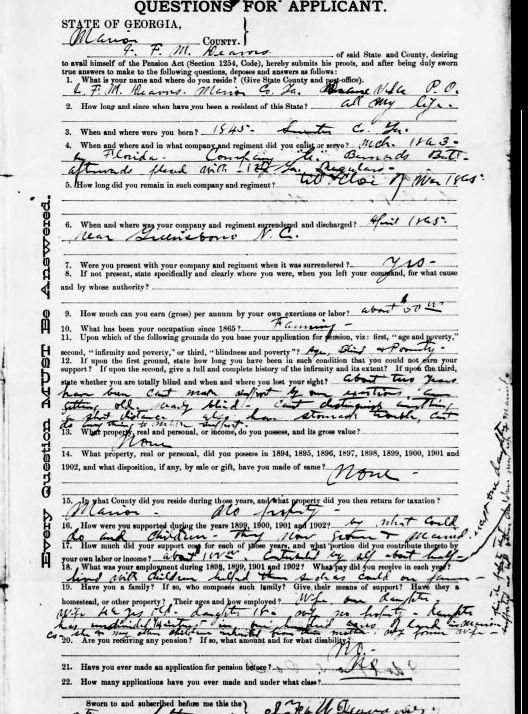 QUESTIONS FOR APPLICANT.
STATE OF GEORGIA,
Marion COUNTY.
F. M. of said State and County, desiring
to avail himself of the Pension Act (Section 1254, Code), hereby submits his proofs, and after being duly sworn
true answers to make to the following questions, deposes and answers as follows:
1. What is your name and where do you reside? (Give State County and post-office).
F. M. Marion Co. Ga. P. O.
2. How long and since when have you been a resident of this State? all my life.
3. When and where were you born? 1845- Sumter Co. Ga.
4. When and where and in what company and regiment did you enlist or serve? Mch. 1863-
Florida- Company Batt-
afterwards placed with 1st Ga. Regulars-
5. How long did you remain in such company and regiment? till close of War 1865-
6. When and where was your company and regiment surrendered and discharged? April 1865-
near Greensboro N. C.
7. Were you present with your company and regiment when it was surrendered? Yes-
8. If not present, state specifically and clearly where you were, when you left your command, for what cause
and by whose authority?
9. How much can you earn (gross) per annum by your own exertions or labor? about $50
10. What has been your occupation since 1865? Farming-
11. Upon which of the following grounds do you base your application for pension, viz: first, "age and poverty,"
second, "infirmity and poverty," or third, "blindness and poverty"? Age, Blind & Poverty-
12. If upon the first ground, state how long you have been in such condition that you could not earn your
support? If upon the second, give a full and complete history of the infirmity and its extent? If upon the third,
state whether you are totally blind and when and where you lost your sight? about two years
have been cant make support by my exertions. am
getting old, nearly blind- cant distinguish anything
a short distance also have stomach trouble, cant
do anything to support.
13. What property, real and personal, or income, do you possess, and its gross value?
None
14. What property, real or personal, did you possess in 1894, 1895, 1896, 1897, 1898, 1899, 1900, 1901 and
1902, and what disposition, if any, by sale or gift, have you made of same?
None-
15. In what County did you reside during those years, and what property did you then return for taxation?
Marion- No property-
16. How were you supported during the years 1899, 1900, 1901 and 1902? by what could
do and children- they now grown & married
17. How much did your support cost for each of those years, and what portion did you contribute thereto by
your own labor or income? about all about half-
18. What was your employment during 1898, 1899, 1901 and 1902? What pay did you receive in each year?
lived with children helped them such as could on farm-
19. Have you a family? If so, who composes such family? Give their means of support? Have they a
homestead, or other property? Their ages and how employed? Wife, one daughter
Wife yrs old daughter no property- daughter
has interest in one hundred acres of land in Marion
Co my other children inherited from their mother, my former wife-
20. Are you receiving any pension? If so, what amount and for what disability?
No.
21. Have you ever made an application for pension before?
22. How many applications have you ever made and under what class?
Sworn to and subscribed before me this the
Every Question MUST Be Answered.